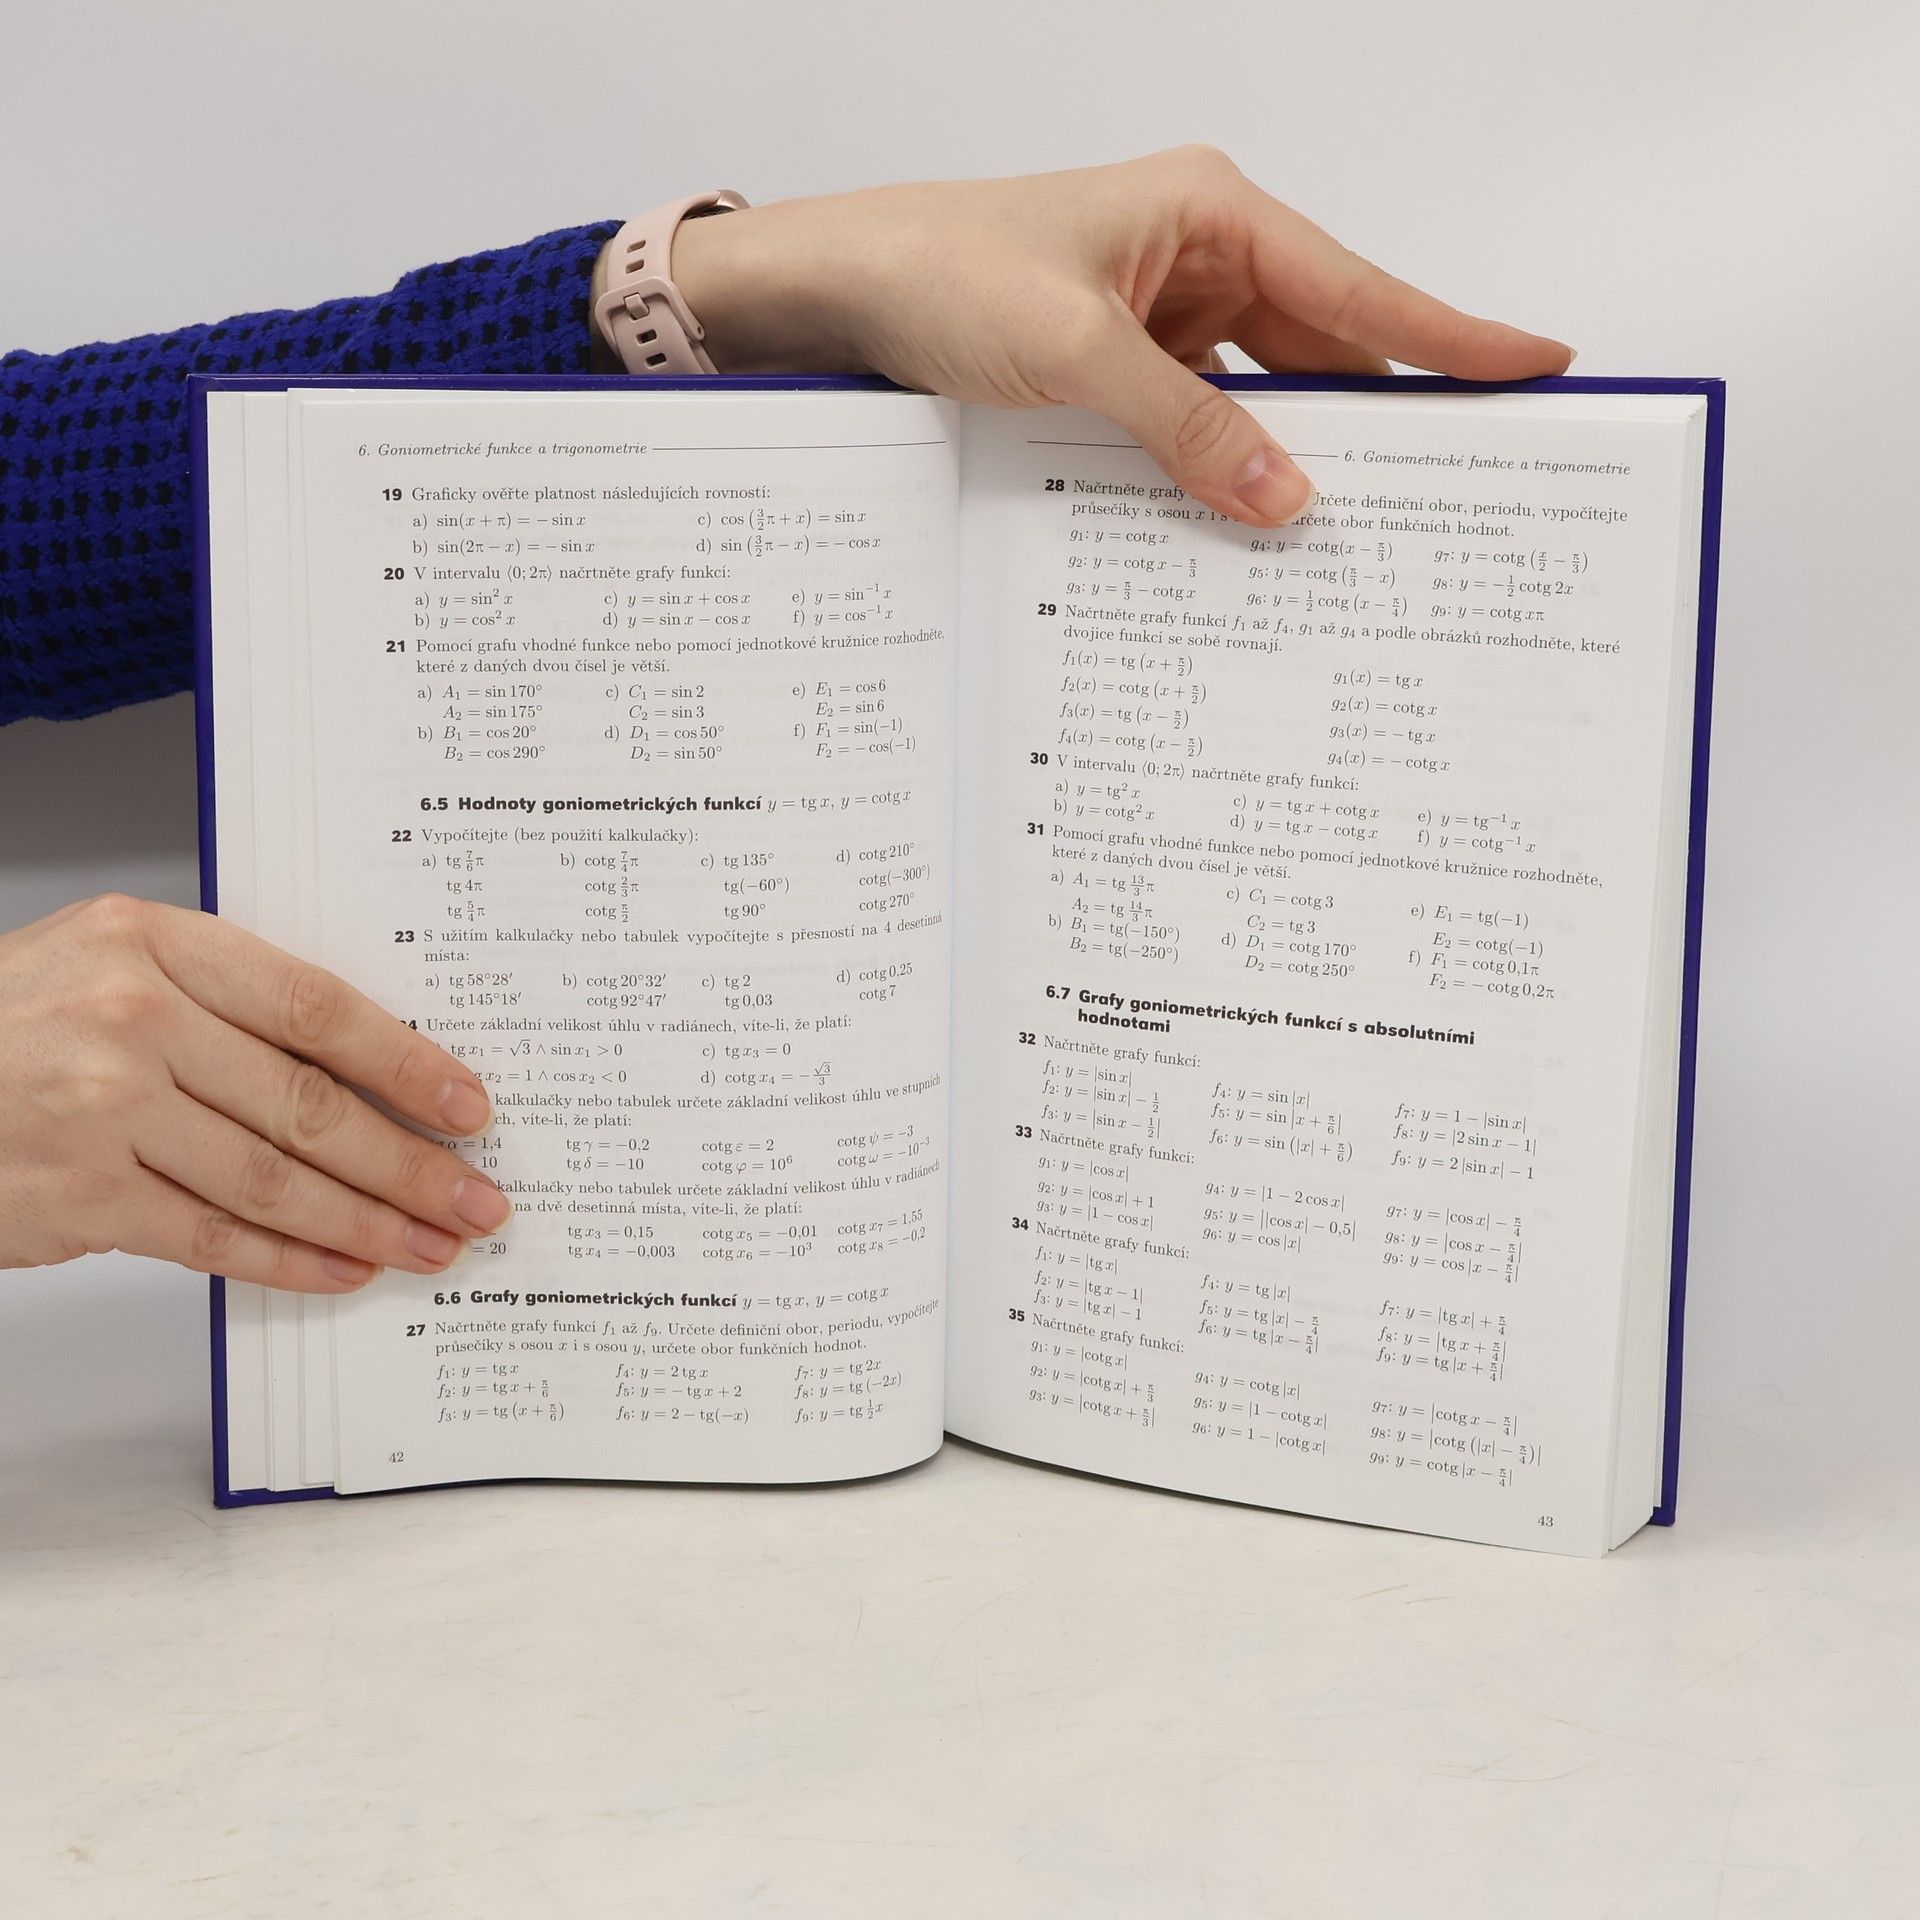 6. Goniometrické funkce a trigonometrie
19 Graficky ověřte platnost následujících rovností:
a) sin(x + π) = − sin x c) cos (3/2 π + x) = sin x
b) sin(2π − x) = − sin x d) sin (3/2 π − x) = − cos x
20 V intervalu ⟨0; 2π⟩ načrtněte grafy funkcí:
a) y = sin² x c) y = sin x + cos x e) y = sin⁻¹ x
b) y = cos² x d) y = sin x − cos x f) y = cos⁻¹ x
21 Pomocí grafu vhodné funkce nebo pomocí jednotkové kružnice rozhodněte,
které z daných dvou čísel je větší.
a) A₁ = sin 170° c) C₁ = sin 2 e) E₁ = cos 6
A₂ = sin 175° C₂ = sin 3 E₂ = sin 6
b) B₁ = cos 20° d) D₁ = cos 50° f) F₁ = sin(−1)
B₂ = cos 290° D₂ = sin 50° F₂ = − cos(−1)
6.5 Hodnoty goniometrických funkcí y = tg x, y = cotg x
22 Vypočítejte (bez použití kalkulačky):
a) tg 7/6 π b) cotg 7/4 π c) tg 135° d) cotg 210°
tg 4π cotg 2/3 π tg(−60°) cotg(−300°)
tg 5/4 π cotg π/2 tg 90° cotg 270°
23 S užitím kalkulačky nebo tabulek vypočítejte s přesností na 4 desetinná
místa:
a) tg 58°28′ b) cotg 20°32′ c) tg 2 d) cotg 0,25
tg 145°18′ cotg 92°47′ tg 0,03 cotg 7
4 Určete základní velikost úhlu v radiánech, víte-li, že platí:
) tg x₁ = √3 ∧ sin x₁ > 0 c) tg x₃ = 0
g x₂ = 1 ∧ cos x₂ < 0 d) cotg x₄ = −√3/3
kalkulačky nebo tabulek určete základní velikost úhlu ve stupních
ch, víte-li, že platí:
α = 1,4 tg γ = −0,2 cotg ε = 2 cotg ψ = −3
= 10 tg δ = −10 cotg φ = 10⁶ cotg ω = −10⁻³
kalkulačky nebo tabulek určete základní velikost úhlu v radiánech
na dvě desetinná místa, víte-li, že platí:
tg x₃ = 0,15 cotg x₅ = −0,01 cotg x₇ = 1,55
= 20 tg x₄ = −0,003 cotg x₆ = −10³ cotg x₈ = −0,2
6.6 Grafy goniometrických funkcí y = tg x, y = cotg x
27 Načrtněte grafy funkcí f₁ až f₉. Určete definiční obor, periodu, vypočítejte
průsečíky s osou x i s osou y, určete obor funkčních hodnot.
f₁: y = tg x f₄: y = 2 tg x f₇: y = tg 2x
f₂: y = tg x + π/6 f₅: y = − tg x + 2 f₈: y = tg (−2x)
f₃: y = tg (x + π/6) f₆: y = 2 − tg(−x) f₉: y = tg 1/2 x
42
6. Goniometrické funkce a trigonometrie
28 Načrtněte grafy Určete definiční obor, periodu, vypočítejte
průsečíky s osou x i s určete obor funkčních hodnot.
g₁: y = cotg x g₄: y = cotg(x − π/3) g₇: y = cotg (x/2 − π/3)
g₂: y = cotg x − π/3 g₅: y = cotg (π/3 − x) g₈: y = −1/2 cotg 2x
g₃: y = π/3 − cotg x g₆: y = 1/2 cotg (x − π/4) g₉: y = cotg xπ
29 Načrtněte grafy funkcí f₁ až f₄, g₁ až g₄ a podle obrázků rozhodněte, které
dvojice funkcí se sobě rovnají.
f₁(x) = tg (x + π/2) g₁(x) = tg x
f₂(x) = cotg (x + π/2) g₂(x) = cotg x
f₃(x) = tg (x − π/2) g₃(x) = − tg x
f₄(x) = cotg (x − π/2) g₄(x) = − cotg x
30 V intervalu ⟨0; 2π⟩ načrtněte grafy funkcí:
a) y = tg² x c) y = tg x + cotg x e) y = tg⁻¹ x
b) y = cotg² x d) y = tg x − cotg x f) y = cotg⁻¹ x
31 Pomocí grafu vhodné funkce nebo pomocí jednotkové kružnice rozhodněte,
které z daných dvou čísel je větší.
a) A₁ = tg 13/3 π c) C₁ = cotg 3 e) E₁ = tg(−1)
A₂ = tg 14/3 π C₂ = tg 3 E₂ = cotg(−1)
b) B₁ = tg(−150°) d) D₁ = cotg 170° f) F₁ = cotg 0,1π
B₂ = tg(−250°) D₂ = cotg 250° F₂ = − cotg 0,2π
6.7 Grafy goniometrických funkcí s absolutními
hodnotami
32 Načrtněte grafy funkcí:
f₁: y = |sin x| f₄: y = sin |x| f₇: y = 1 − |sin x|
f₂: y = |sin x| − 1/2 f₅: y = sin |x + π/6| f₈: y = |2 sin x − 1|
f₃: y = |sin x − 1/2| f₆: y = sin (|x| + π/6) f₉: y = 2 |sin x| − 1
33 Načrtněte grafy funkcí:
g₁: y = |cos x| g₄: y = |1 − 2 cos x| g₇: y = |cos x| − π/4
g₂: y = |cos x| + 1 g₅: y = ||cos x| − 0,5| g₈: y = |cos x − π/4|
g₃: y = |1 − cos x| g₆: y = cos |x| g₉: y = cos |x − π/4|
34 Načrtněte grafy funkcí:
f₁: y = |tg x| f₄: y = tg |x| f₇: y = |tg x| + π/4
f₂: y = |tg x − 1| f₅: y = tg |x| − π/4 f₈: y = |tg x + π/4|
f₃: y = |tg x| − 1 f₆: y = tg |x − π/4| f₉: y = tg |x + π/4|
35 Načrtněte grafy funkcí:
g₁: y = |cotg x| g₄: y = cotg |x| g₇: y = |cotg x − π/4|
g₂: y = |cotg x| + π/3 g₅: y = |1 − cotg x| g₈: y = |cotg (|x| − π/4)|
g₃: y = |cotg x + π/3| g₆: y = 1 − |cotg x| g₉: y = cotg |x − π/4|
43